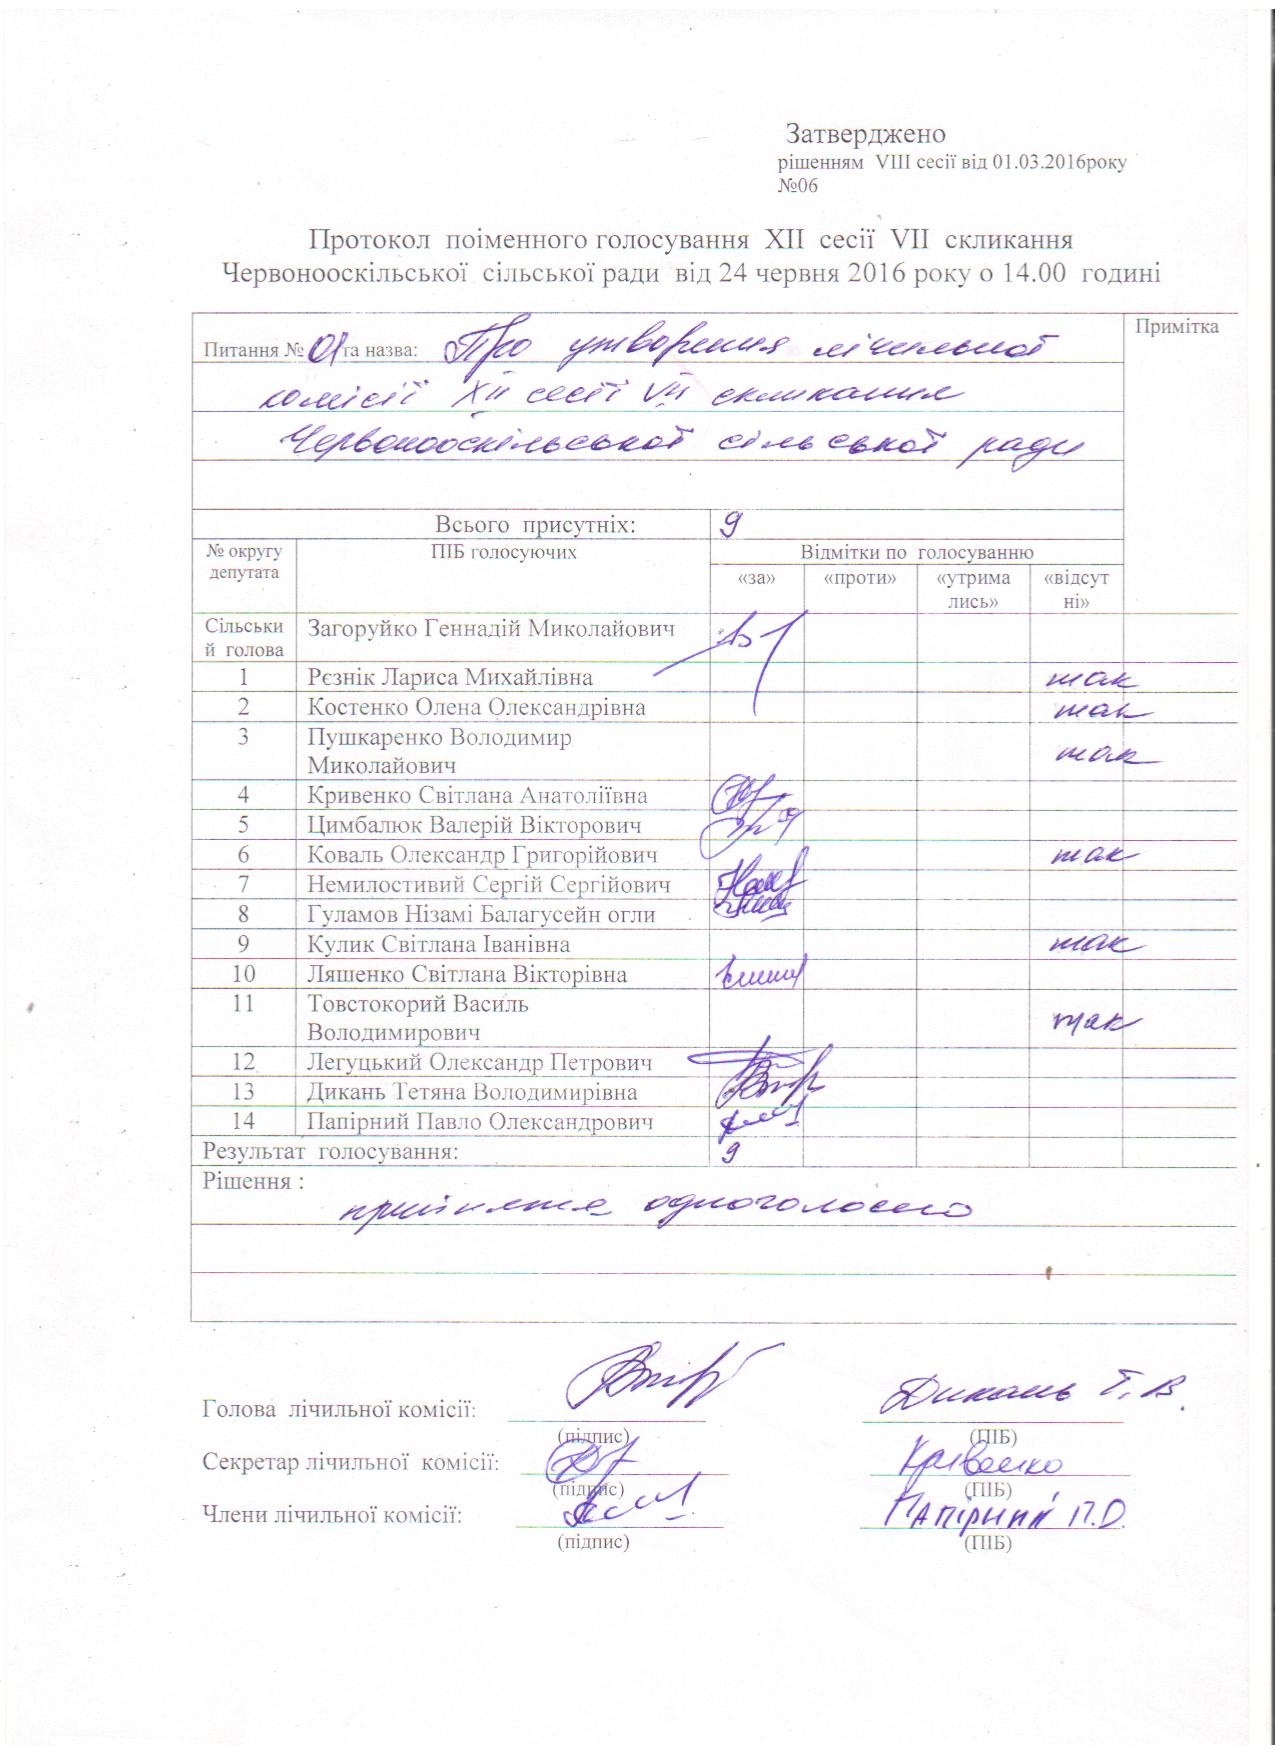 Затверджено
рішенням VIII сесії від 01.03.2016року
№06
Протокол поіменного голосування XII сесії VII скликання
Червонооскільської сільської ради від 24 червня 2016 року о 14.00 годині
Питання № 01 та назва: Про утворення лічильної
Примітка
комісії XII сесії VII скликання
Червонооскільської сільської ради
Всього присутніх: 9
№ округу депутата ПІБ голосуючих Відмітки по голосуванню
«за» «проти» «утрима «відсут
лись» ні»
Сільськи Загоруйко Геннадій Миколайович
й голова
1 Рєзнік Лариса Михайлівна так
2 Костенко Олена Олександрівна так
3 Пушкаренко Володимир
Миколайович так
4 Кривенко Світлана Анатоліївна
5 Цимбалюк Валерій Вікторович
6 Коваль Олександр Григорійович так
7 Немилостивий Сергій Сергійович
8 Гуламов Нізамі Балагусейн огли
9 Кулик Світлана Іванівна так
10 Ляшенко Світлана Вікторівна
11 Товстокорий Василь
Володимирович так
12 Легуцький Олександр Петрович
13 Дикань Тетяна Володимирівна
14 Папірний Павло Олександрович
Результат голосування: 9
Рішення :
прийняте одноголосно
Голова лічильної комісії: Дикань Т. В.
(підпис) (ПІБ)
Секретар лічильної комісії: Кривенко
(підпис) (ПІБ)
Члени лічильної комісії: Папірний П.О.
(підпис) (ПІБ)